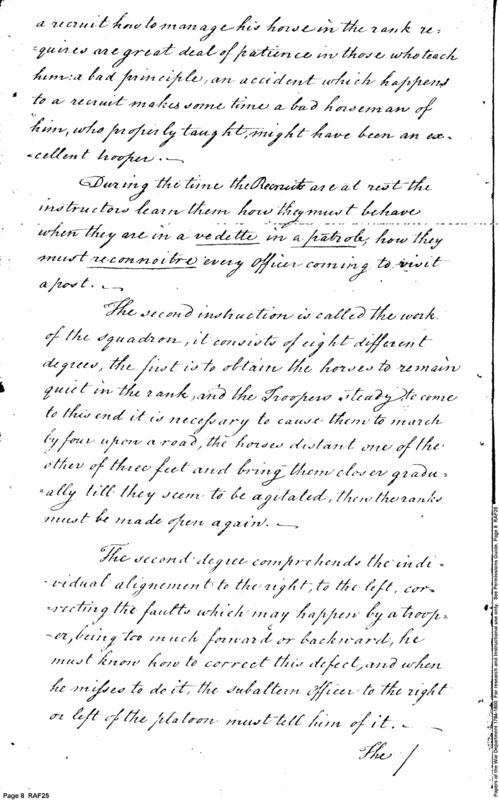 a recruit how to manage his horse in the rank re=
=quires are great deal of patience in those who teach
him: a bad principle, an accident which happens
to a recruit makes some time a bad horseman of
him, who properly taught, might have been an ex=
=cellent trooper. —
During the time the Recruits are at rest the
instructors learn them how they must behave
when they are in a vedette, in a patrole, how they
must reconnoitre every Officer coming to visit
a post. —
The second instruction is called the work
of the squadron, it consists of eight different
degrees, the first is to obtain the horses to remain
quiet in the rank, and the Troopers steady, to come
to this end it is necessary to cause them to march
by four upon a road, the horses distant one of the
other of three feet and bring them closer gradu=
=ally till they seem to be agitated, then the ranks
must be made open again. —
The second degree comprehends the indi=
=vidual alignement to the right, to the left, cor=
=recting the faults which may happen by a troop=
=er, being too much forward or backward, he
must know how to correct this defect, and when
he misses to do it, the subaltern Officer to the right
or left of the platoon must tell him of it. —
The /
Page 8 RAF25
Papers of the War Department 1784-1800. For research and instructional use only. See Permissions Guide. Page 8 RAF25